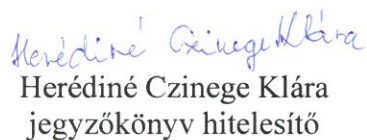 Herédiné Czinege Klára
Herédiné Czinege Klára
jegyzőkönyv hitelesítő